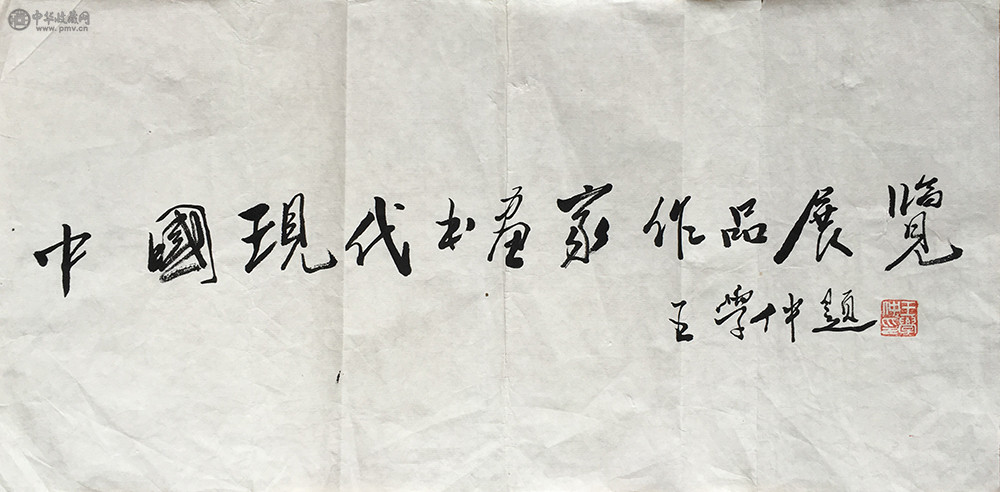 中华收藏网
www.pmv.cn
中國現代书画家作品展覽
王學仲題
王學仲印